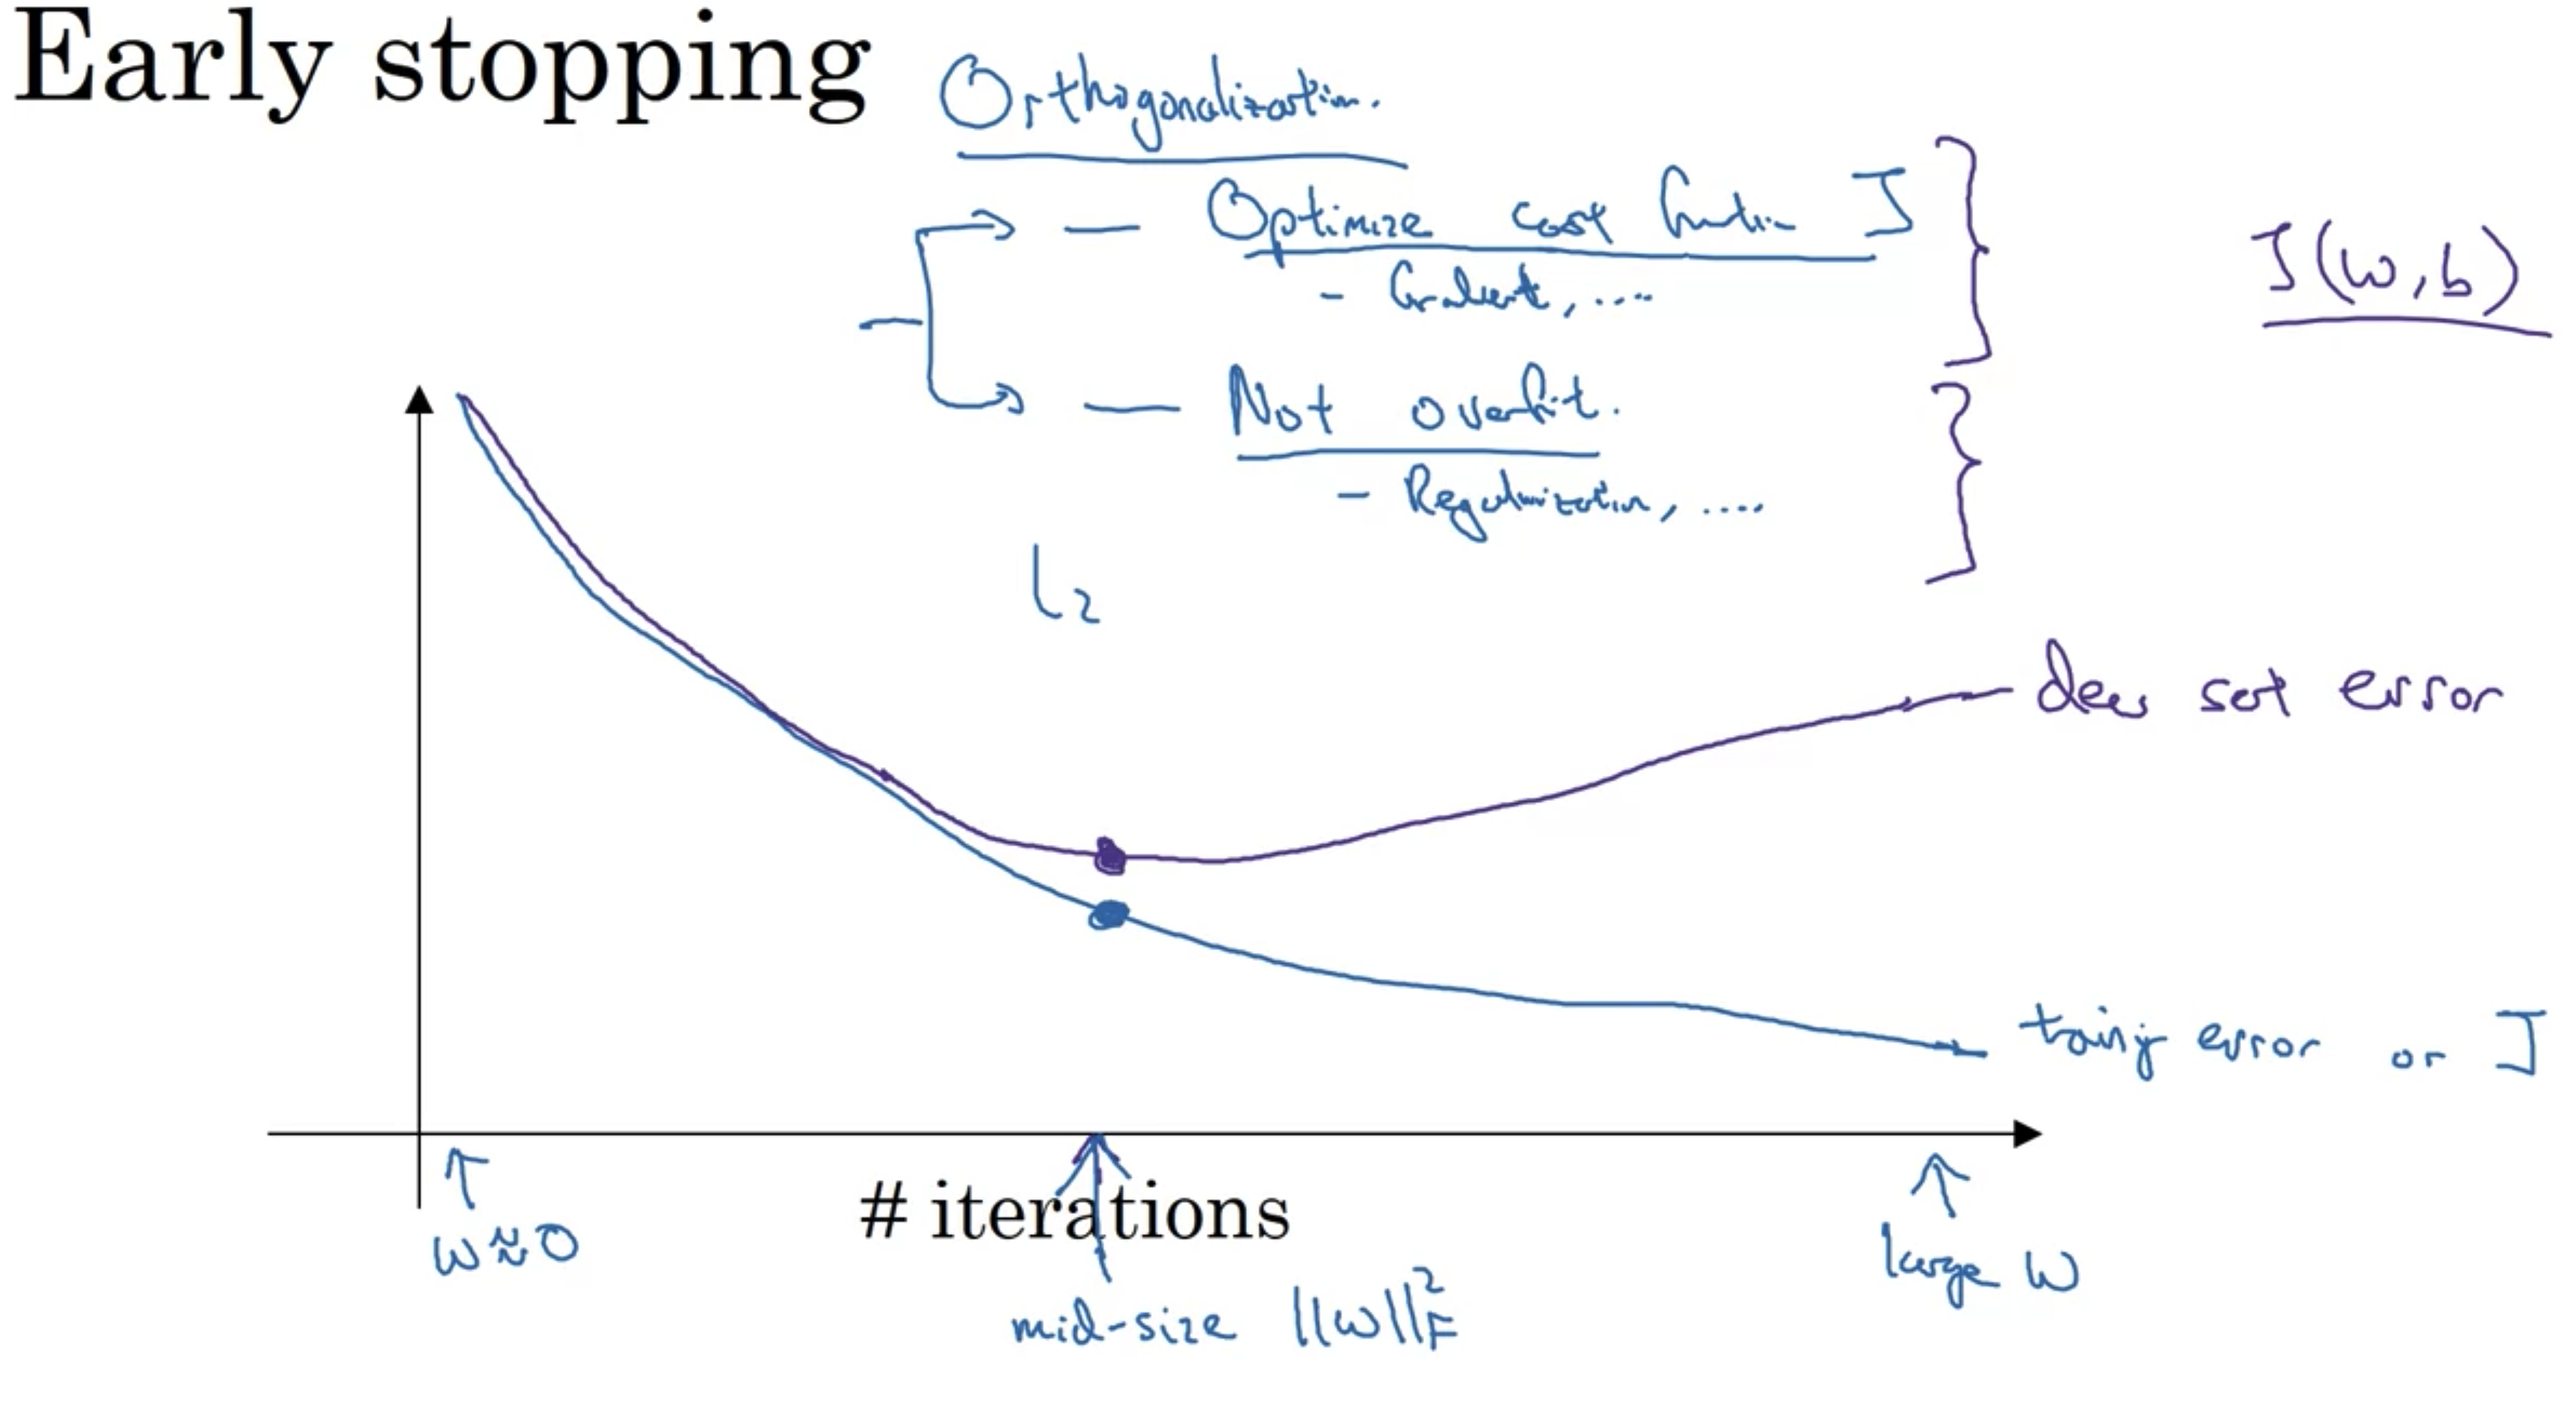 Early stopping
Orthogonalization.
— Optimize cost function J
- Gradient, ....
J(w,b)
— Not overfit.
- Regularization, ....
L2
dev set error
training error or J
# iterations
w≈0
large w
mid-size ||w||²F